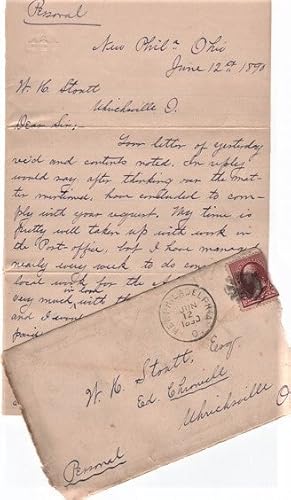 Personal
New Phila Ohio
June 12th 1890
W. K. Stoutt
Uhrichsville O.
Dear Sir;
Your letter of yesterday
rec'd and contents noted. In reply
would say, after thinking over the mat-
ter have concluded to com-
ply with your request. My time is
pretty well taken up with work in
the Post-office, but I have managed
nearly every week to do
local work for the
very much with the
and I
W. K. Stoutt, Esq.
Ed. Chronicle
Uhrichsville
O
Personal
JUN
12